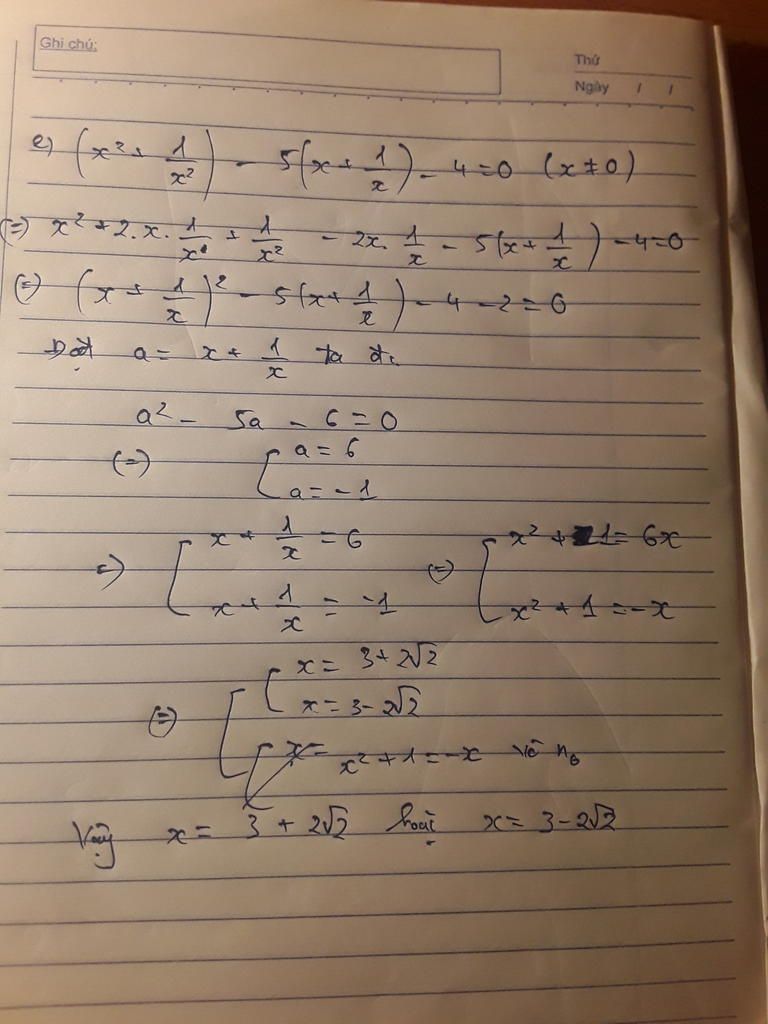 Ghi chú:
Thứ
Ngày / /
e) (x² + 1/x²) - 5(x + 1/x) - 4 = 0 (x ≠ 0)
(=) x² + 2.x.1/x + 1/x² - 2x.1/x - 5(x + 1/x) - 4 = 0
(=) (x + 1/x)² - 5(x + 1/x) - 4 - 2 = 0
Đặt a = x + 1/x ta đ.
a² - 5a - 6 = 0
(=) [ a = 6
a = -1
=) [ x + 1/x = 6 (=) [ x² + 1 = 6x
x + 1/x = -1 x² + 1 = -x
(=) [ [ x = 3 + 2√2
x = 3 - 2√2
x² + 1 = -x vô n₀
Vậy x = 3 + 2√2 hoặc x = 3 - 2√2